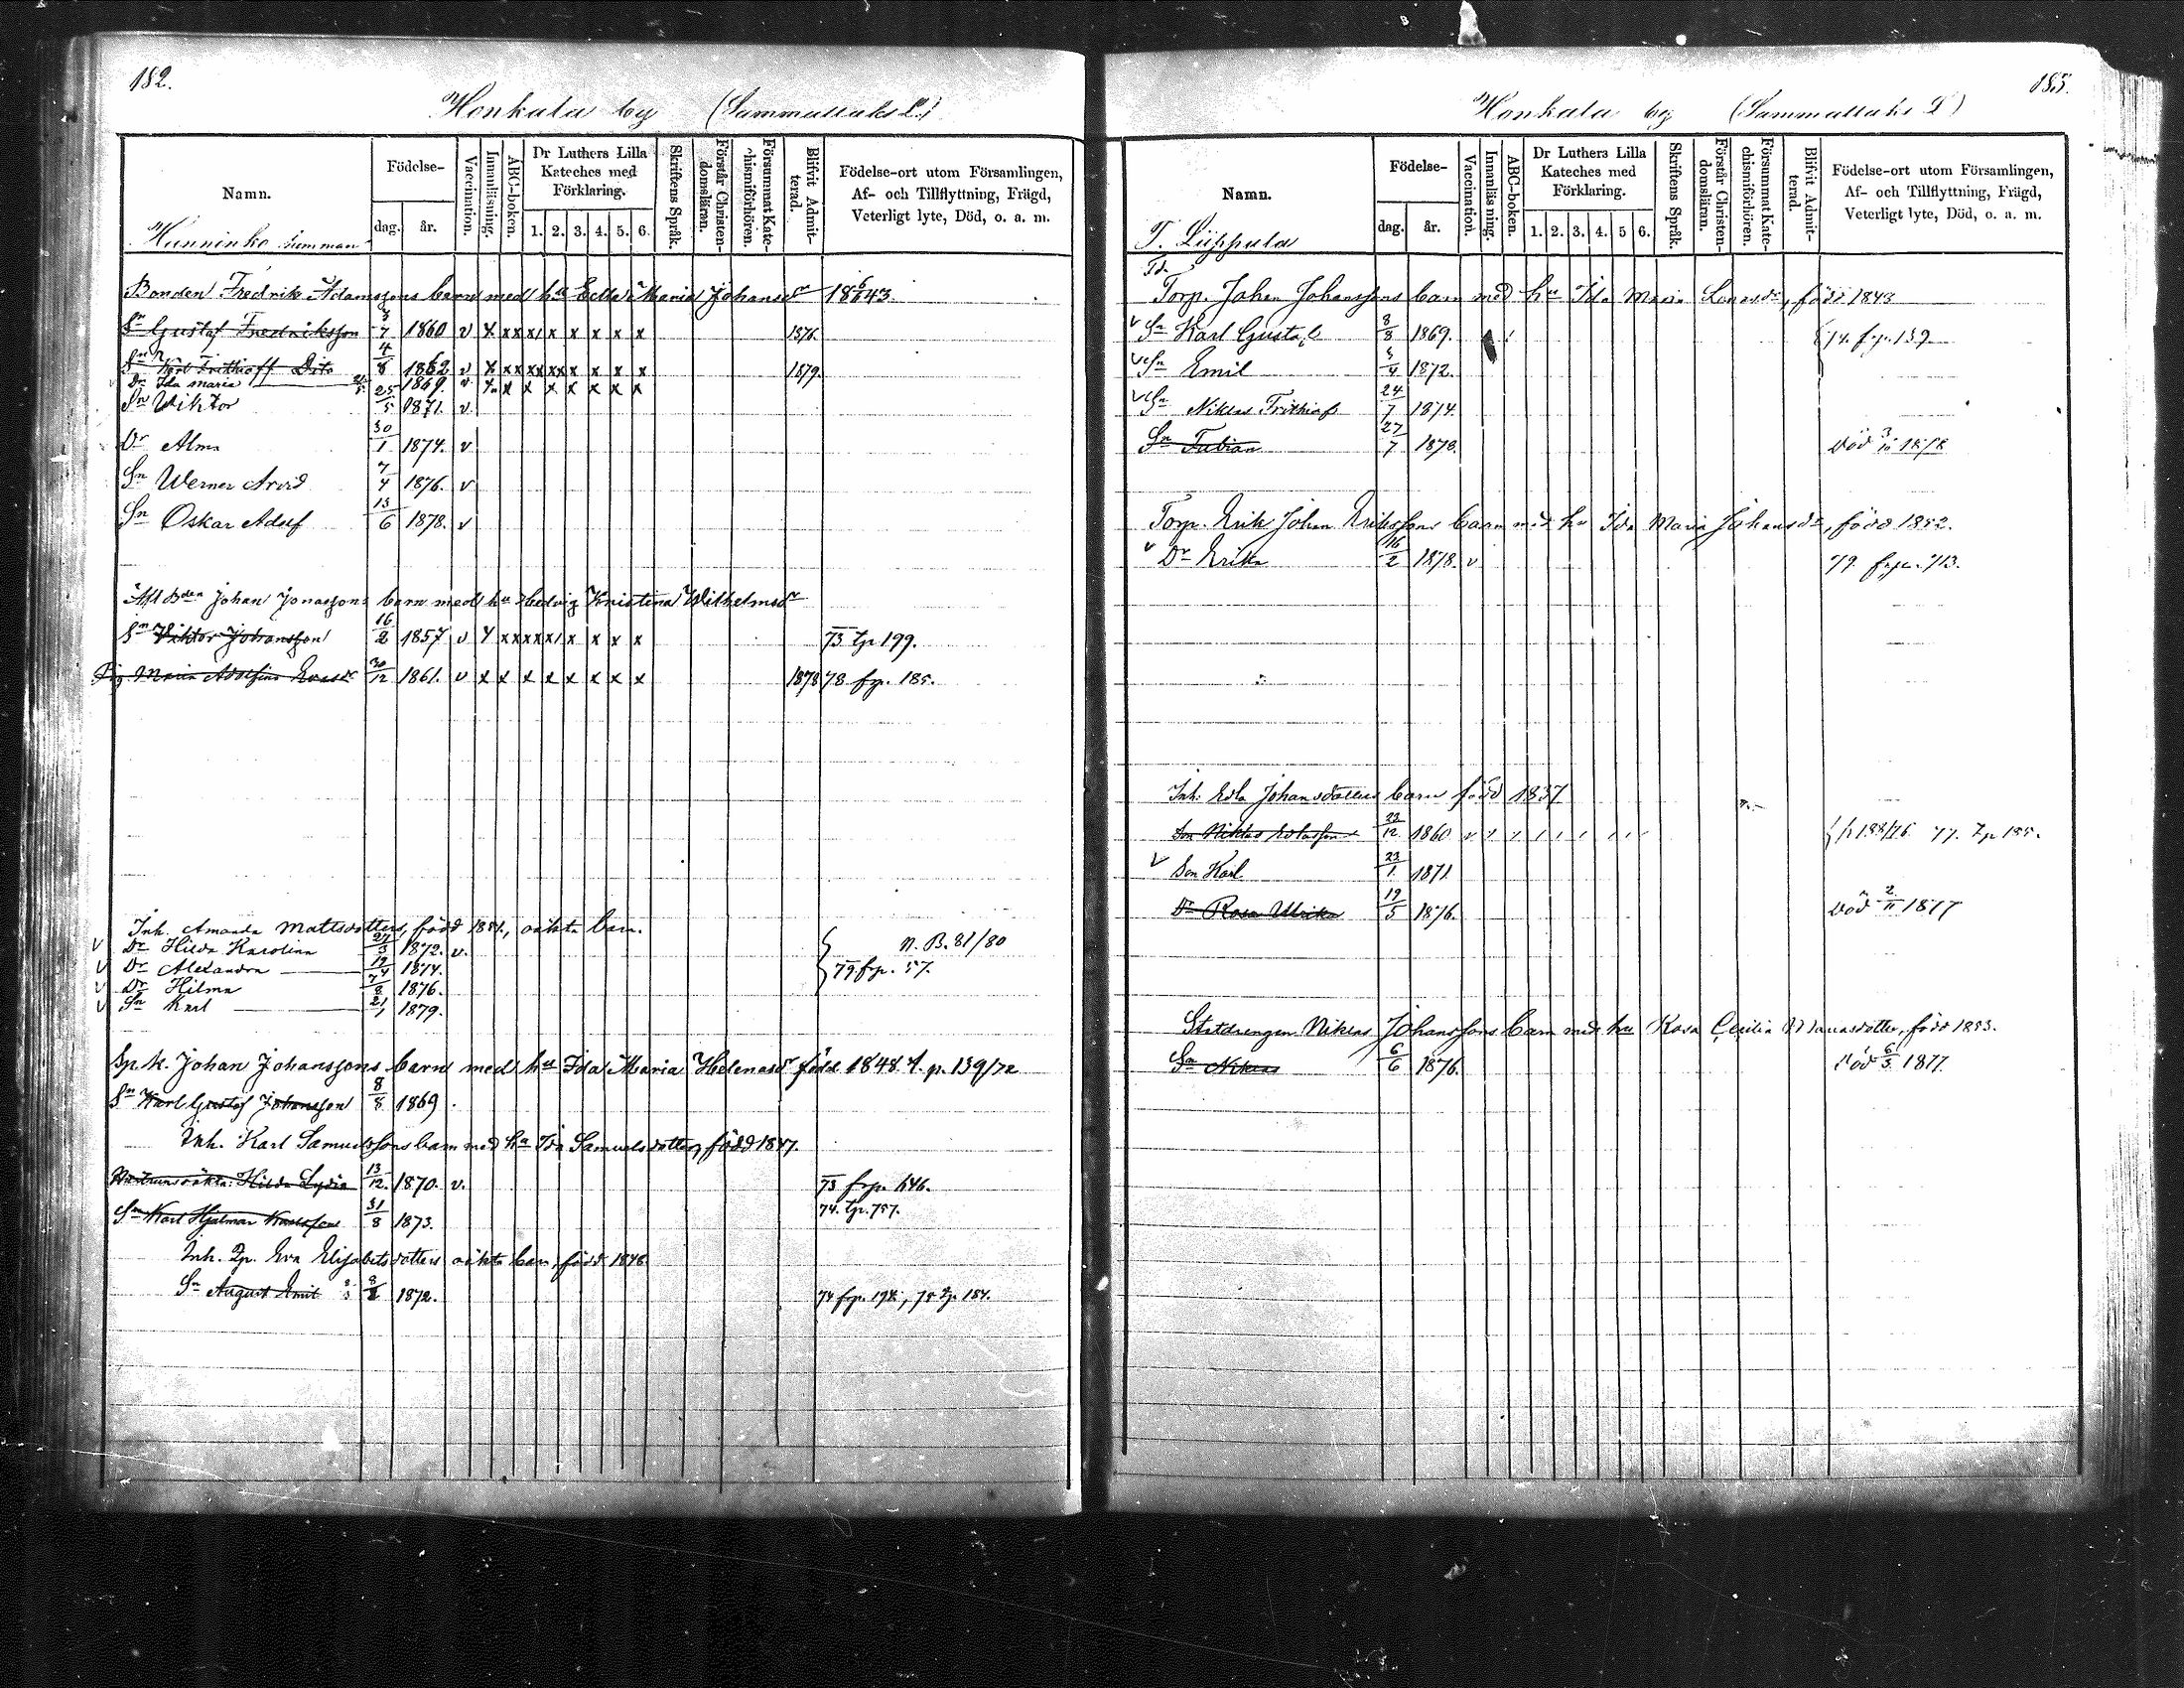 182.
Honkala by (Sammattaks L.)
Namn.
Födelse-
dag. år.
Vaccination.
Innanläsning.
ABC-boken.
Dr Luthers Lilla Kateches med Förklaring.
1. 2. 3. 4. 5. 6.
Skriftens Språk.
Förstår Christen-domsläran.
Försummat Kate-chismiförhören.
Blifvit Admit-terad.
Födelse-ort utom Församlingen,
Af- och Tillflyttning, Frägd,
Veterligt lyte, Död, o. a. m.
Hunninko
Bonden Fredrik Adamssons barn med hu Maria Johansdr
Sn Gustaf Fredriksson 7 1860 v x x x x x x x x 1876.
Sn Karl Frithioff Dito 4/8 1862 v x x x x x x x x x 1879.
Dr Ida Maria 1869. v x x x x x x x
Sn Viktor 25/5 1871. v
Dr Alma 30/1 1874. v
Sn Werner Arvid 7/4 1876. v
Sn Oskar Adolf 13/6 1878. v
Johan Jonassons barn med hu Hedvig Kristina Wilhelmsdr
Sn Viktor Johansson 16/2 1857 v x x x x x x x x x 73 tp 199.
Maria Adolfina 30/12 1861. v x x x x x x x x 1878 78 frp. 185.
Inh. Amanda Mattsdotters, född 1851, oäkta barn.
v Dr Hilda Karolina 27/3 1872. v. N. B. 81/80
v Dr Alexandra 1874. 79 frp. 57.
v Dr Hilma 1876.
v Sn Karl 21/1 1879.
Johan Johanssons barn med hu Ida Maria Helenasdr född 1848. p. 139/72
Sn Karl Gustaf Johansson 8/8 1869.
Inh. Karl Samuelssons barn med hu Ida Samuelsdotter, född 1847.
Hilda Lydia 13/12. 1870. v. 73 frp. 646.
Sn Karl Hjalmar Karlsson 31/8 1873. 74. tp. 757.
Inh. Eva Elisabetsdotters oäkta barn, född 1848
Sn August Emil 1872. 74 frp. 198, 78 tp. 184.
183.
Honkala by (Sammattaks L)
Namn.
Födelse-
dag. år.
Vaccination.
Innanläsning.
ABC-boken.
Dr Luthers Lilla Kateches med Förklaring.
1. 2. 3. 4. 5 6.
Skriftens Språk.
Förstår Christen-domsläran.
Försummat Kate-chismiförhören.
Blifvit Admit-terad.
Födelse-ort utom Församlingen,
Af- och Tillflyttning, Frägd,
Veterligt lyte, Död, o. a. m.
T. Liippula
Torp. Johan Johanssons barn med hu Ida Maria, född 1843
v Sn Karl Gustaf 8/8 1869. 74. frp. 139
v Sn Emil 1872.
v Sn Niklas Frithiof 24/7 1874.
Sn Fabian 27/7 1878. död 1878
Torp. Erik Johan Erikssons barn med hu Ida Maria Johansdr, född 1852.
v Dr Erika 16/2 1878. v 79. frp. 713.
Inh. Eva Johansdotters barn född 1837
Son Niklas 23/12 1860 77. tp 185.
v Son Karl 23/1. 1871
Dr Rosa Ulrika 19/5 1876. död 2/11 1877
Statdrengen Niklas Johanssons barn med hu Rosa Cecilia, född 1853.
Sn Niklas 6/6 1876. död 6/5. 1877.